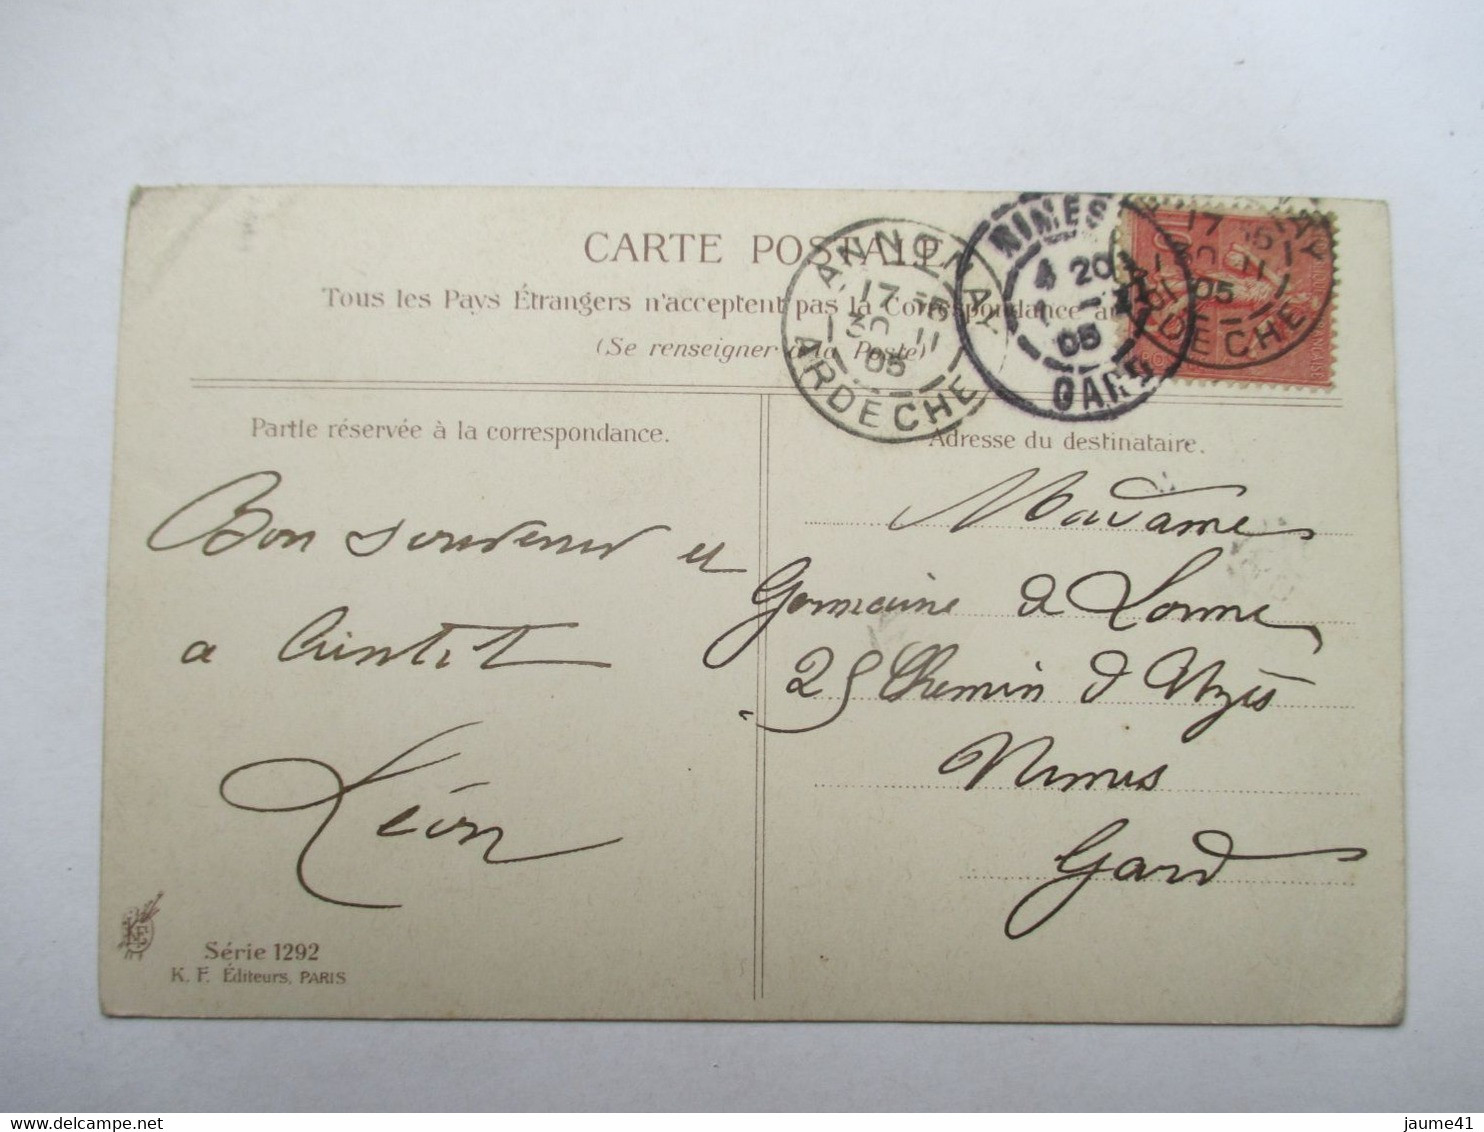 CARTE POSTALE
Tous les Pays Étrangers n'acceptent pas la Correspondance au
(Se renseigner à la Poste)
ANNONAY
17 35
30 11
05
ARDECHE
NIMES
4 20
05
GARD
17 35
30 11
05
ARDECHE
Partie réservée à la correspondance.
Adresse du destinataire.
Bon souvenir et
a bientot
Léon
Madame
Germaine de Lorme
25 Chemin d'Uzès
Nimes
Gard
Série 1292
K. F. Éditeurs, PARIS
jaume41